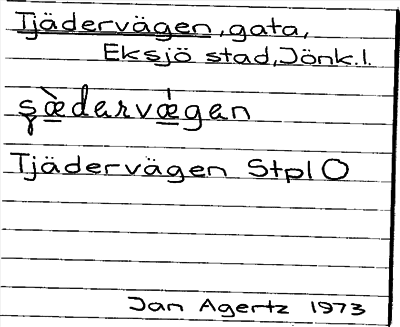 Tjädervägen, gata,
Eksjö stad, Jönk. l.
Tjädervägen Stpl O
Jan Agertz 1973